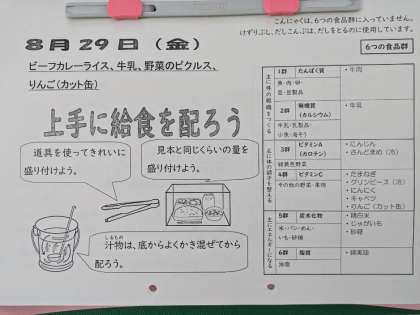 こんにゃくは、6つの食品群に入っていません。
けずりぶし、だしこんぶは、だしをとるのに使用しています。
8月29日（金）
6つの食品群
ビーフカレーライス、牛乳、野菜のピクルス、
りんご（カット缶）
上手に給食を配ろう
道具を使ってきれいに
盛り付けよう。
見本と同じくらいの量を
盛り付けよう。
しるもの
汁物は、底からよくかき混ぜてから
配ろう。
主に体の組織をつくる
1群 たんぱく質
魚・肉・卵・
豆・豆製品
・牛肉
2群 無機質
（カルシウム）
牛乳・乳製品・
小魚・海そう
・牛乳
主に体の調子を整える
3群 ビタミンA
（カロテン）
緑黄色野菜
・にんじん
・さんどまめ（冷）
4群 ビタミンC
その他の野菜・果物
・たまねぎ
・グリンピース（冷）
・にんにく
・キャベツ
・りんご（カット缶）
主にエネルギーになる
5群 炭水化物
米・パン・めん・
いも・砂糖
・精白米
・じゃがいも
・砂糖
6群 脂質
油脂
・綿実油